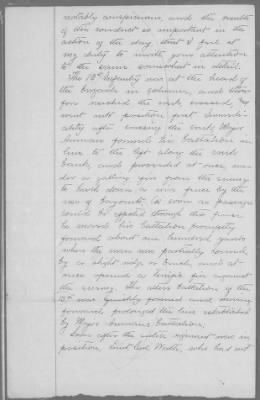 notably conspicuous, and the results
of this conduct so important in the
action of the day, that I feel it
my duty to invite your attention
to the same somewhat in detail.
The 13th Infantry was at the head of
the brigade in column, and there-
fore reached the creek, crossed, and
went into position first. Immedi-
ately after crossing the creek Major
formed his battalion in
line to the left along the creek
bank, and proceeded at once un-
der a galling fire from the enemy
to break down a wire fence by the
use of bayonets. As soon as passage
could be effected through this fence
he moved his battalion promptly
forward about one hundred yards
where the men were partially covered
by a slight ridge or bench, and at
once opened a fire against
the enemy. The other battalion of the
13th was quickly formed and moving
forward, prolonged the line established
by Major battalion.
Soon after the entire regiment was in
position, Lieut. Col. Worth, who had not